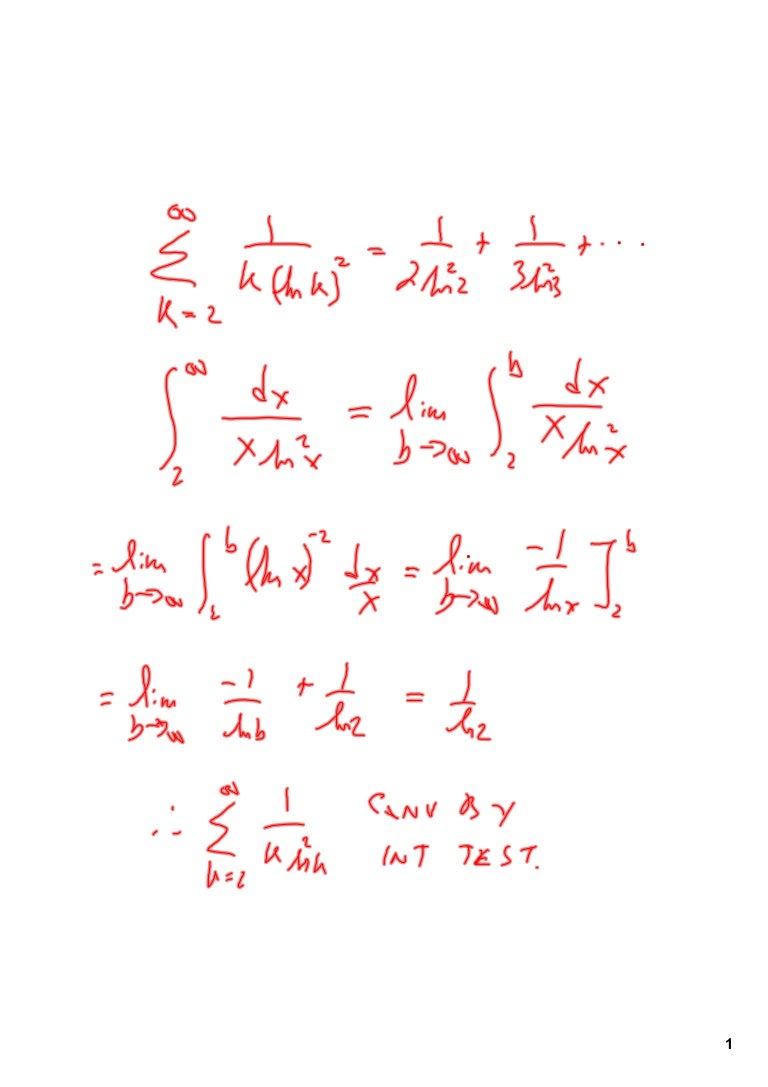 ∞∑k=2 1/(k(ln k)²) = 1/(2 ln²2) + 1/(3 ln²3) + ···
∫₂^∞ dx/(x ln²x) = lim b→∞ ∫₂^b dx/(x ln²x)
= lim b→∞ ∫₂^b (ln x)⁻² dx/x = lim b→∞ -1/ln x ]₂^b
= lim b→∞ -1/ln b + 1/ln 2 = 1/ln 2
∴ ∞∑k=2 1/(k ln²k) CONV BY
INT TEST.
1